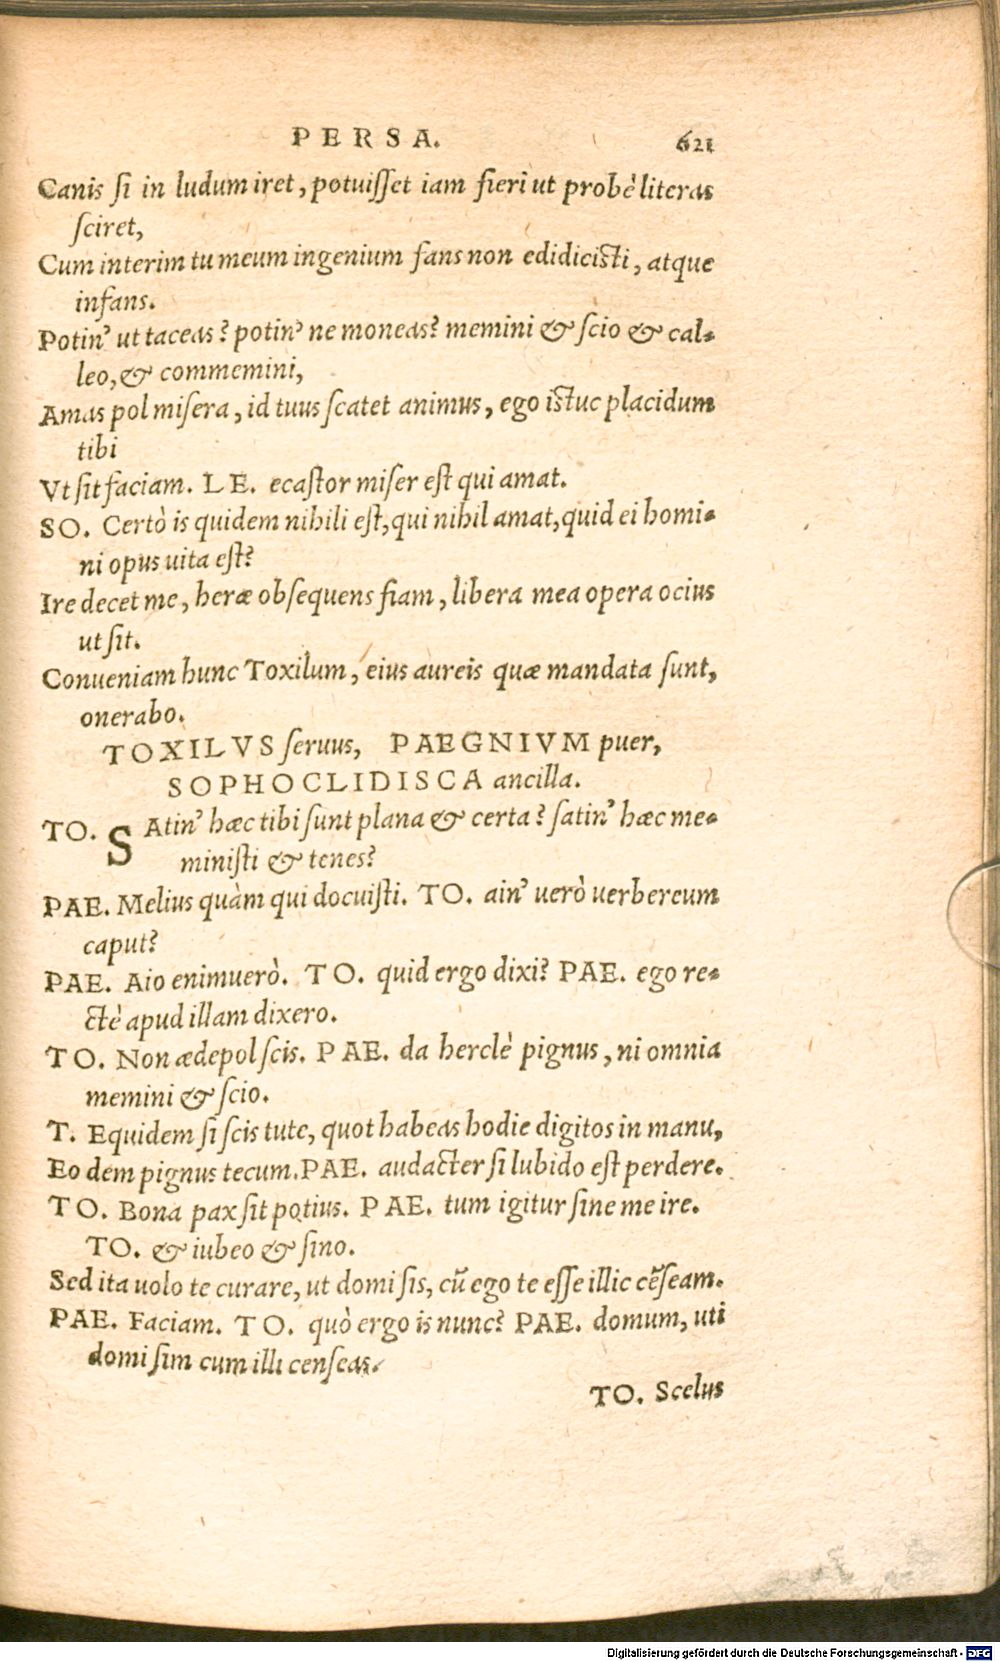 PERSA. 621
Canis ſi in ludum iret, potuiſſet iam fieri ut probè literas
ſciret,
Cum interim tu meum ingenium fans non edidiciſti, atque
infans.
Potin' ut taceas? potin' ne moneas? memini & ſcio & cal-
leo, & commemini,
Amas pol miſera, id tuus ſcatet animus, ego iſtuc placidum
tibi
Vt ſit faciam. LE. ecaſtor miſer eſt qui amat.
SO. Certò is quidem nihili eſt, qui nihil amat, quid ei homi-
ni opus uita eſt?
Ire decet me, heræ obſequens fiam, libera mea opera ocius
ut ſit.
Conueniam hunc Toxilum, eius aureis quæ mandata ſunt,
onerabo.
TOXILVS ſeruus, PAEGNIVM puer,
SOPHOCLIDISCA ancilla.
TO. SAtin' hæc tibi ſunt plana & certa? ſatin' hæc me-
miniſti & tenes?
PAE. Melius quàm qui docuiſti. TO. ain' uerò uerbereum
caput?
PAE. Aio enimuerò. TO. quid ergo dixi? PAE. ego re-
ctè apud illam dixero.
TO. Non ædepol ſcis. PAE. da herclè pignus, ni omnia
memini & ſcio.
T. Equidem ſi ſcis tute, quot habeas hodie digitos in manu,
Eo dem pignus tecum. PAE. audacter ſi lubido eſt perdere.
TO. Bona pax ſit potius. PAE. tum igitur ſine me ire.
TO. & iubeo & ſino.
Sed ita uolo te curare, ut domi ſis, cũ ego te eſſe illic cẽſeam.
PAE. Faciam. TO. quò ergo is nunc? PAE. domum, uti
domi ſim cum illi cenſeas.
TO. Scelus
Digitalisierung gefördert durch die Deutsche Forschungsgemeinschaft - DFG